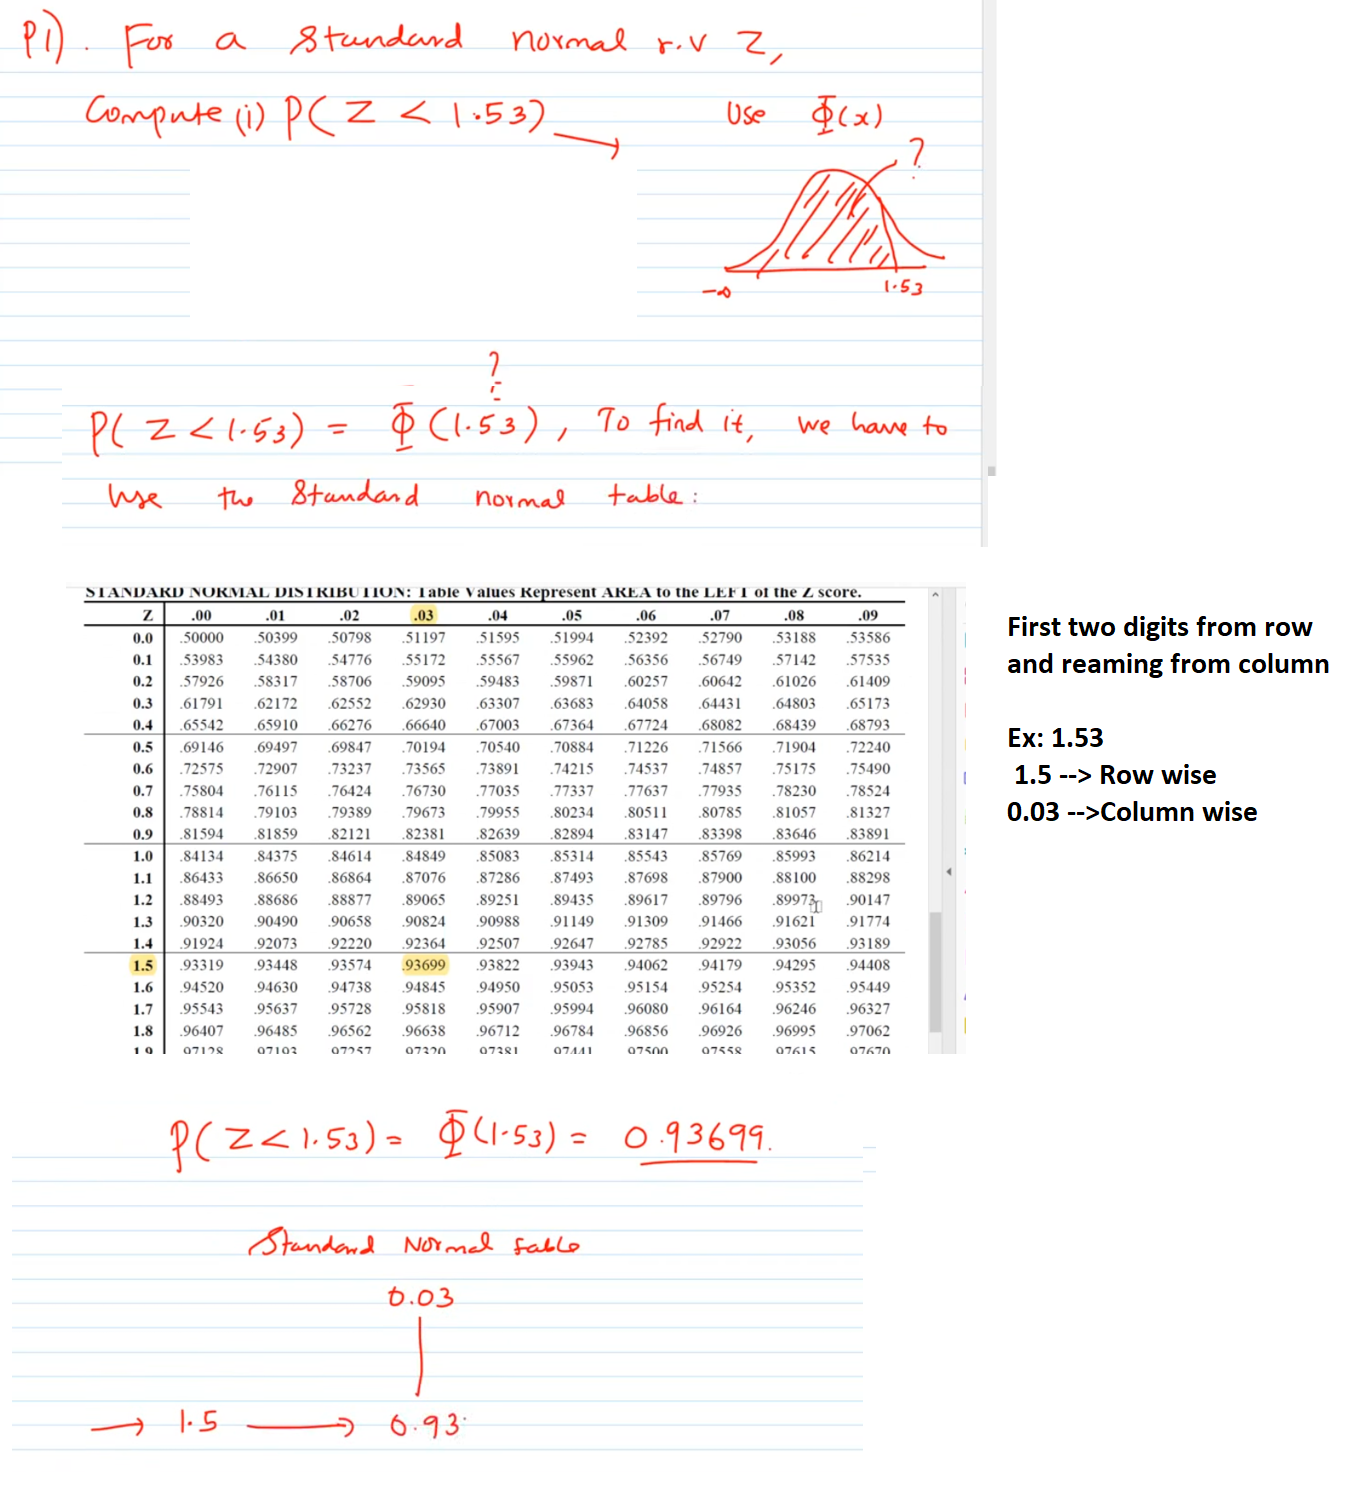 P1). For a Standard normal r.v Z,
Compute (i) P( Z < 1.53) → Use Φ(x)
?
-∞ 1.53
?
P( Z < 1.53) = Φ (1.53), To find it, we have to
use the Standard normal table:
STANDARD NORMAL DISTRIBUTION: Table Values Represent AREA to the LEFT of the Z score.
Z .00 .01 .02 .03 .04 .05 .06 .07 .08 .09
0.0 .50000 .50399 .50798 .51197 .51595 .51994 .52392 .52790 .53188 .53586
0.1 .53983 .54380 .54776 .55172 .55567 .55962 .56356 .56749 .57142 .57535
0.2 .57926 .58317 .58706 .59095 .59483 .59871 .60257 .60642 .61026 .61409
0.3 .61791 .62172 .62552 .62930 .63307 .63683 .64058 .64431 .64803 .65173
0.4 .65542 .65910 .66276 .66640 .67003 .67364 .67724 .68082 .68439 .68793
0.5 .69146 .69497 .69847 .70194 .70540 .70884 .71226 .71566 .71904 .72240
0.6 .72575 .72907 .73237 .73565 .73891 .74215 .74537 .74857 .75175 .75490
0.7 .75804 .76115 .76424 .76730 .77035 .77337 .77637 .77935 .78230 .78524
0.8 .78814 .79103 .79389 .79673 .79955 .80234 .80511 .80785 .81057 .81327
0.9 .81594 .81859 .82121 .82381 .82639 .82894 .83147 .83398 .83646 .83891
1.0 .84134 .84375 .84614 .84849 .85083 .85314 .85543 .85769 .85993 .86214
1.1 .86433 .86650 .86864 .87076 .87286 .87493 .87698 .87900 .88100 .88298
1.2 .88493 .88686 .88877 .89065 .89251 .89435 .89617 .89796 .89973 .90147
1.3 .90320 .90490 .90658 .90824 .90988 .91149 .91309 .91466 .91621 .91774
1.4 .91924 .92073 .92220 .92364 .92507 .92647 .92785 .92922 .93056 .93189
1.5 .93319 .93448 .93574 .93699 .93822 .93943 .94062 .94179 .94295 .94408
1.6 .94520 .94630 .94738 .94845 .94950 .95053 .95154 .95254 .95352 .95449
1.7 .95543 .95637 .95728 .95818 .95907 .95994 .96080 .96164 .96246 .96327
1.8 .96407 .96485 .96562 .96638 .96712 .96784 .96856 .96926 .96995 .97062
1.9 .97128 .97193 .97257 .97320 .97381 .97441 .97500 .97558 .97615 .97670
First two digits from row
and reaming from column
Ex: 1.53
1.5 --> Row wise
0.03 -->Column wise
P( Z < 1.53) = Φ(1.53) = 0.93699.
Standard Normal table
0.03
→ 1.5 → 0.93